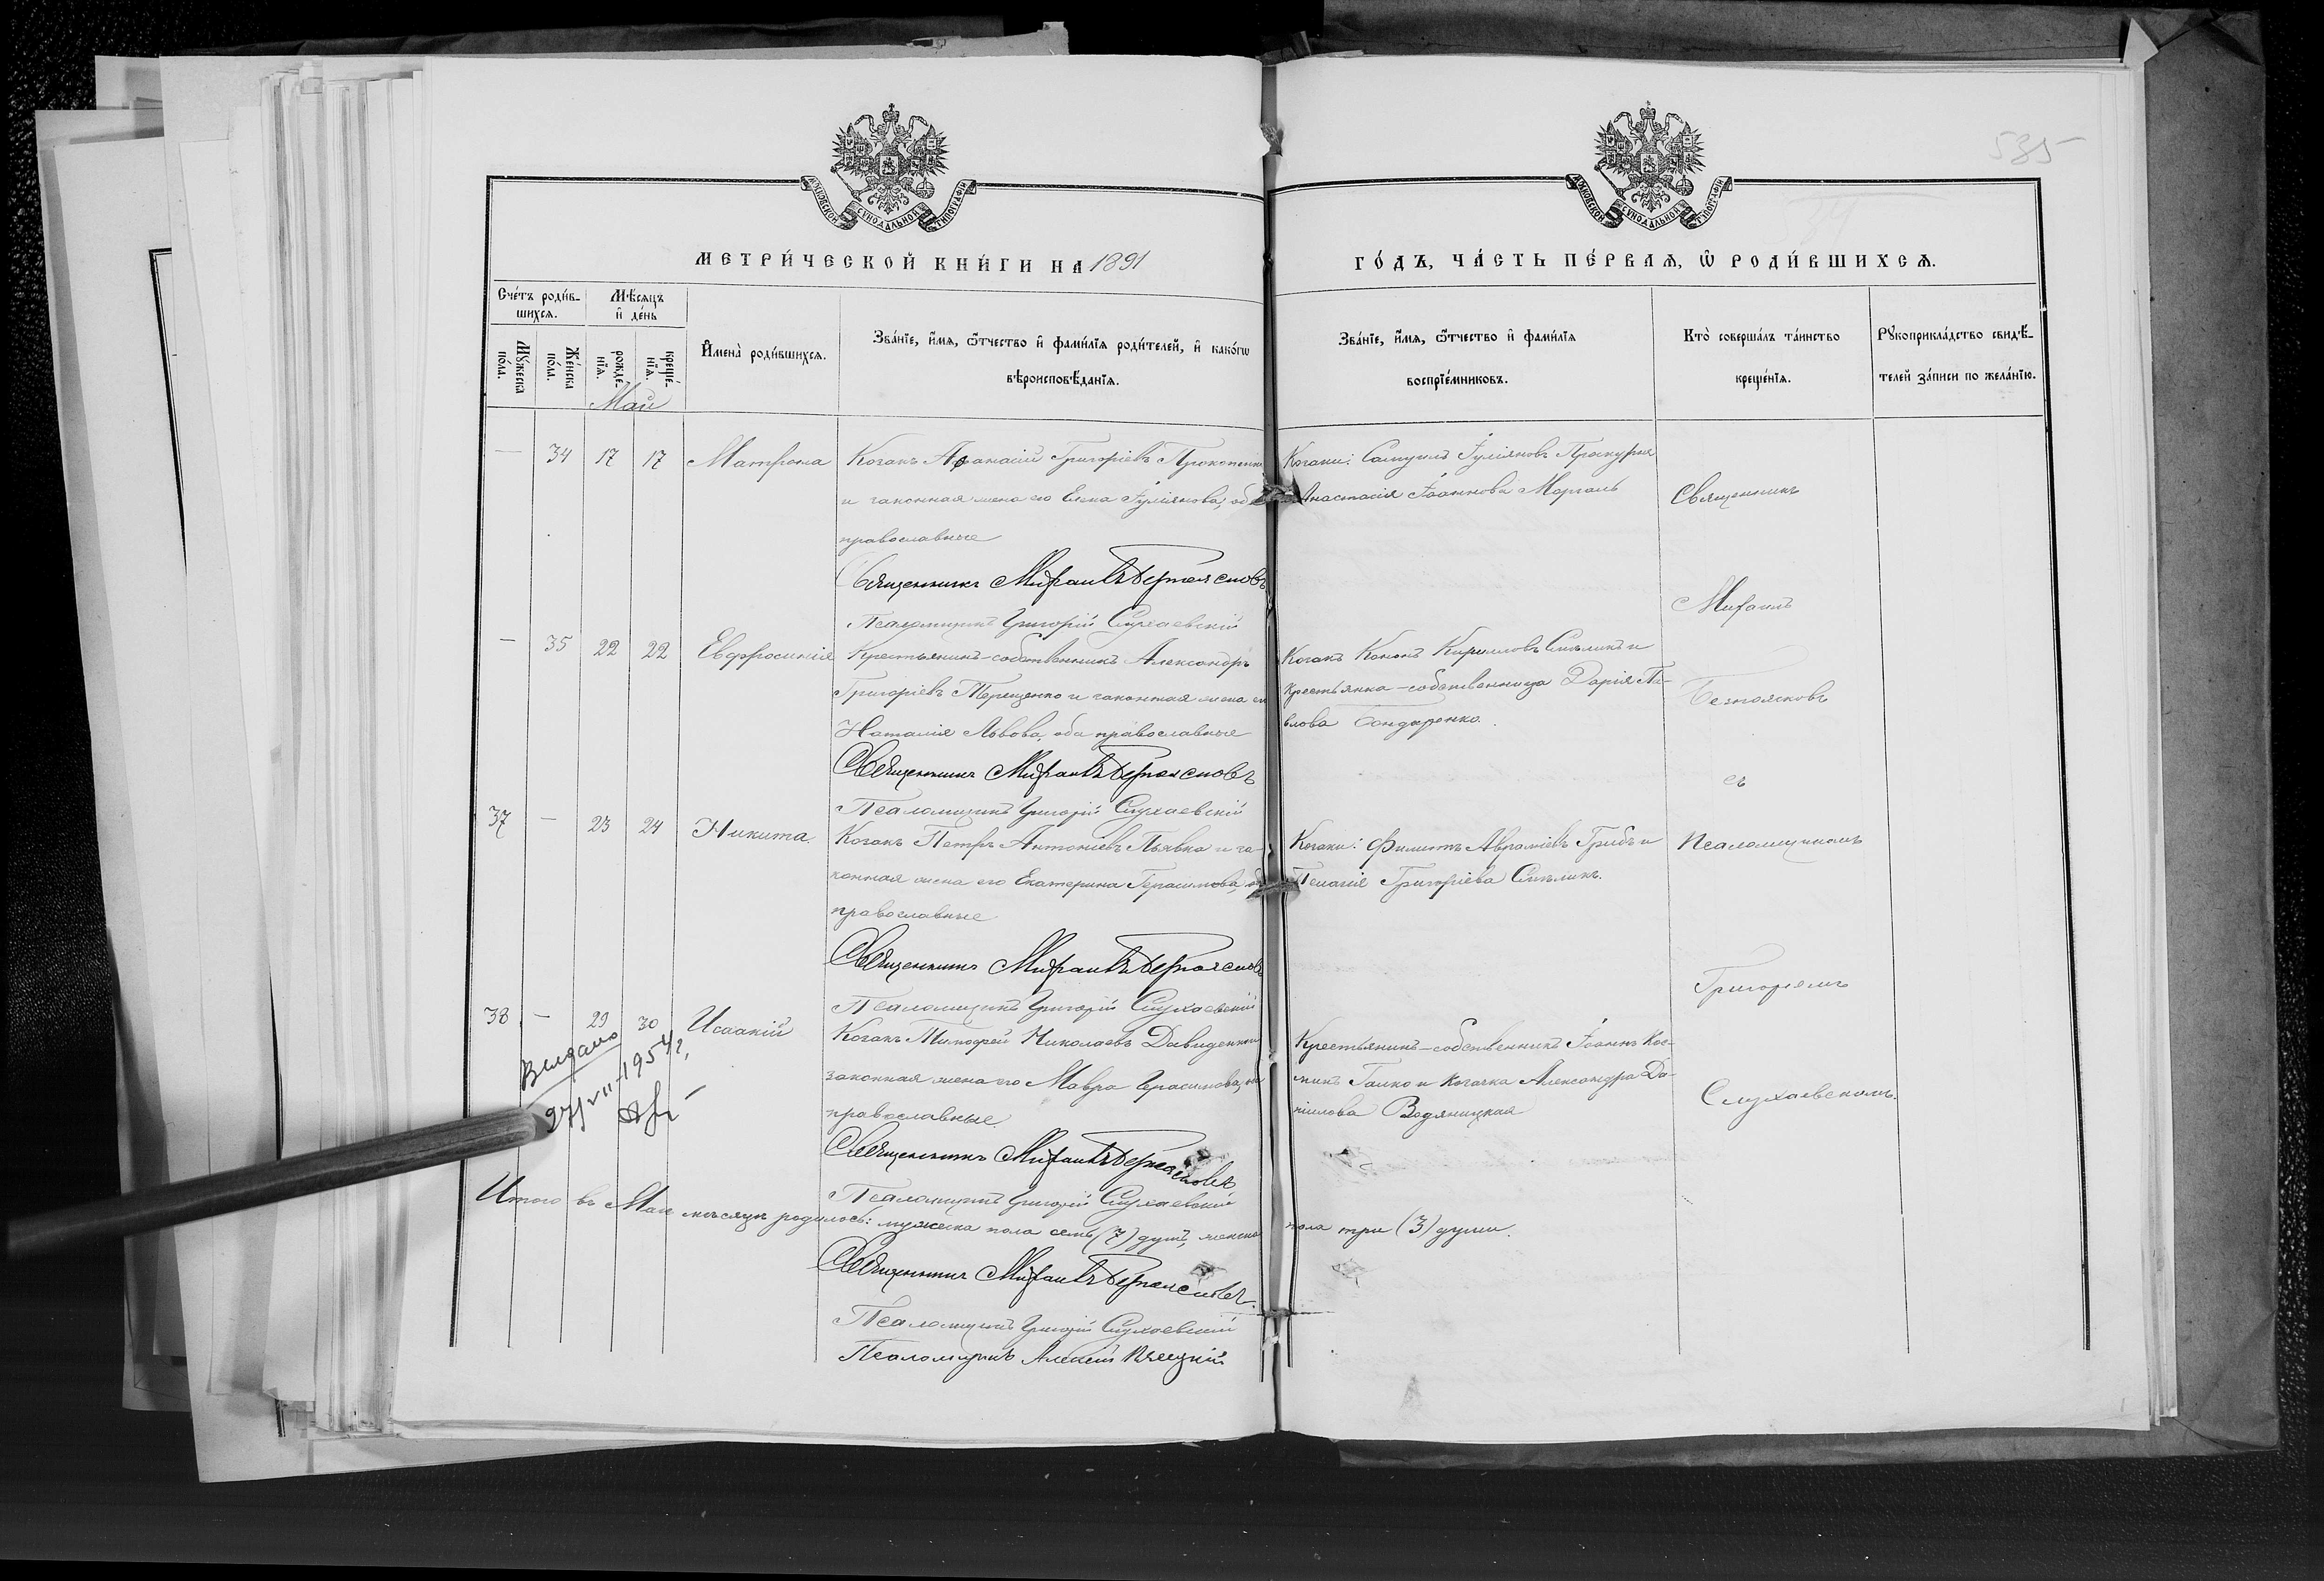 535
МОСКОВСКОЙ СУНОДАЛЬНОЙ ТИПОГРАФІИ
МОСКОВСКОЙ СУНОДАЛЬНОЙ ТИПОГРАФІИ
МЕТРИ́ЧЕСКОЙ КНИ́ГИ НА 1891
ГО́ДЪ, ЧА́СТЬ ПЕ́РВАѦ, Ѡ РОДИ́ВШИХСѦ.
Сче́тъ роди́в-
шихсѧ.
Мѣ́сѧцъ
и҆ де́нь
Му́жеска
по́ла.
Же́нска
по́ла.
рожде́-
нїѧ.
креще́-
нїѧ.
И҆мена̀ роди́вшихсѧ.
Зва́нїе, и҆́мѧ, ѻ҆́тчество и҆ фами́лїѧ роди́телей, и҆ како́гѡ
вѣроисповѣ́данїѧ.
Зва́нїе, и҆́мѧ, ѻ҆́тчество и҆ фами́лїѧ
воспрїе́мниковъ.
Кто̀ соверша́лъ та́инство
креще́нїѧ.
Рꙋкоприкла́дство свидѣ́-
телей за́писи по жела́нїю.
Май
— 34 17 17 Матрона Козакъ Аѳанасій Григоріевъ Прокопенко
и законная жена его Елена Іуліянова, оба
православные
Священникъ Михаилъ Безпоясковъ
Псаломщикъ Григорій Слухаевскій
Козаки: Самуилъ Іуліяновъ Прокурня
Анастасія Іоаннова Моргаль
— 35 22 22 Евфросинія Крестьянинъ-собственникъ Александръ
Григоріевъ Терещенко и законная жена его
Наталія Львова, оба православные
Священникъ Михаилъ Безпоясковъ
Псаломщикъ Григорій Слухаевскій
Козакъ Кононъ Кирилловъ Сиѣликъ и
крестьянка-собственница Дарія Па-
влова Бондаренко.
37 — 23 24 Никита. Козакъ Петръ Антоніевъ Пьявка и за-
конная жена его Екатерина Герасимова, оба
православные
Священникъ Михаилъ Безпоясковъ
Псаломщикъ Григорій Слухаевскій
Козаки: Филиппъ Авраміевъ Грибъ и
Пелагія Григоріева Сиѣликъ.
38 — 29 30 Исаакій Козакъ Тимофей Николаевъ Давиденко и
законная жена его Мавра Герасимова, оба
православные.
Священникъ Михаилъ Безпоясковъ
Псаломщикъ Григорій Слухаевскій
Крестьянинъ-собственникъ Іоаннъ Кос-
минъ Галко и козачка Александра Да-
ніилова Водяницкая
Священникъ
Михаилъ
Безпоясковъ
съ
Псаломщикомъ
Григоріемъ
Слухаевскимъ.
Видано
27/VII-1954 г.
Итого въ Маѣ мѣсяцѣ родилось: мужеска пола семь (7) душъ, женска пола три (3) души.
Священникъ Михаилъ Безпоясковъ.
Псаломщикъ Григорій Слухаевскій
Псаломщикъ Алексій